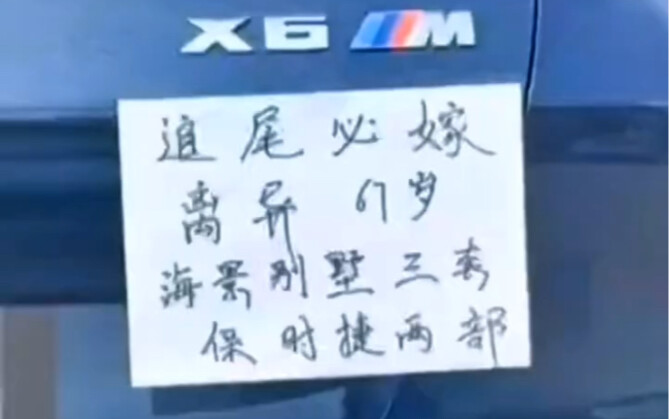 X6 M
追尾必嫁
离异 67岁
海景别墅三套
保时捷两部